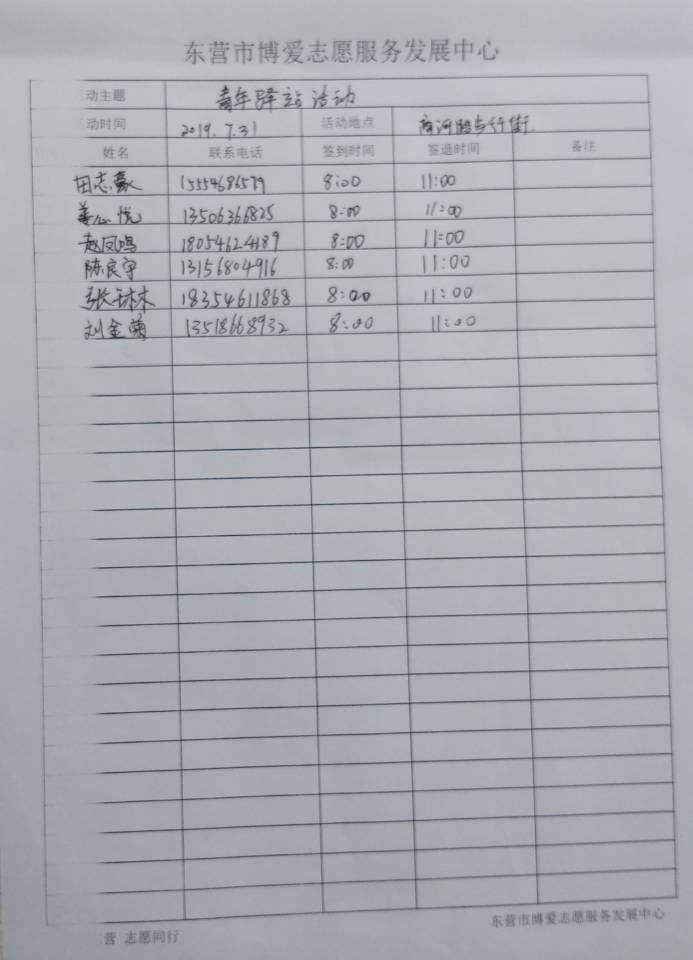 东营市博爱志愿服务发展中心
动主题 青年驿站活动
动时间 2019.7.31 活动地点 商河路步行街
姓名 联系电话 签到时间 签退时间 备注
田志豪 15554686579 8:00 11:00
姜心悦 13506366825 8:00 11:00
赵凤鸣 18054624189 8:00 11:00
陈良宇 13156804916 8:00 11:00
张林木 18354611868 8:00 11:00
刘金菊 13518668932 8:00 11:00
东营市博爱志愿服务发展中心
营 志愿同行